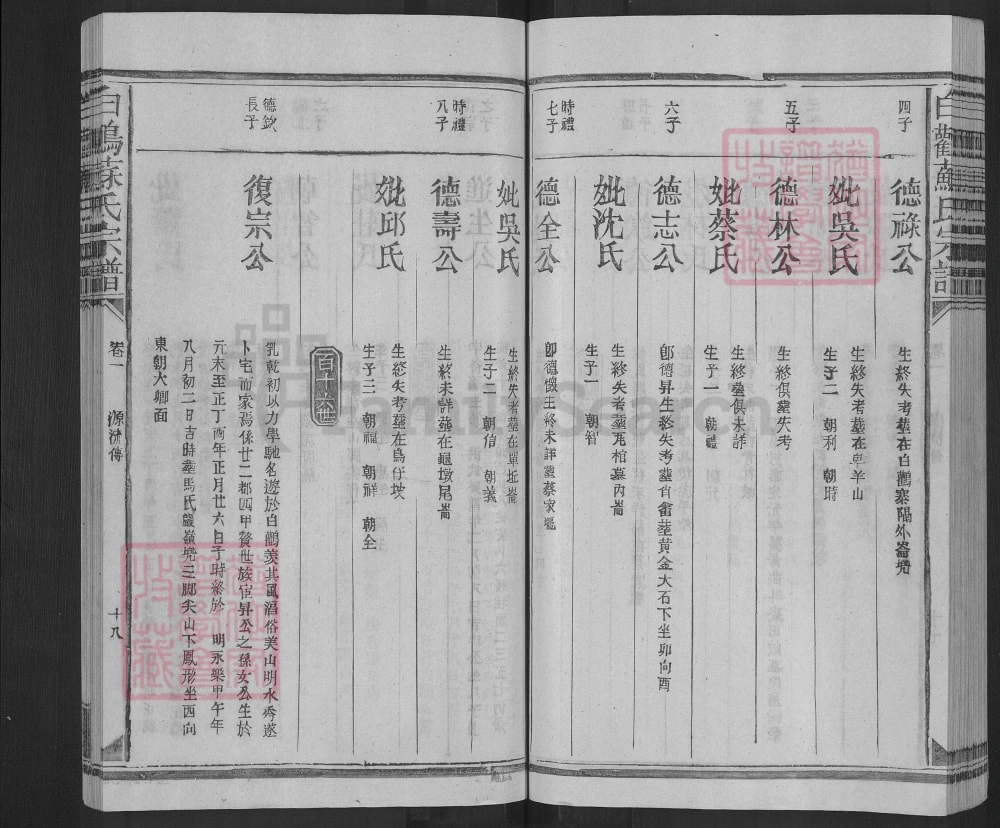 四子
德祿公
生終失考塟在白鶴寨隔外崙塆
妣吳氏
生終失考塟在臭羊山
生子二 朝利 朝時
五子
德林公
生終俱塟失考
妣蔡氏
生終塟俱未詳
生子一 朝禮
六子
德志公
卽德昇生終失考塟肖畬塟黄金大石下坐卯向酉
妣沈氏
生終失考塟瓦棺墓內崙
生子一 朝智
時禮
七子
德全公
卽德懷生終未詳塟蔡家壠
妣吳氏
生終失考塟在單坵崙
生子二 朝信 朝義
時禮
八子
德壽公
生終未詳塟在龜墩尾崙
妣邱氏
生終失考塟在鳥仔垵
生子三 朝福 朝祥 朝全
百十六世
德欽
長子
復宗公
乳乾初以力學馳名遊於白鶴羨其風酒俗美山明水秀遂
卜宅而家焉係廿二都四甲贅世族宦昇公之孫女公生於
元末至正丁酉年正月廿六日子時終於 明永樂甲午年
八月初二日吉時塟馬氏嶺塆三脚尖山下鳳形坐西向
東朝大卿面
白鶴蘇氏宗譜
卷一 源流傳
十八